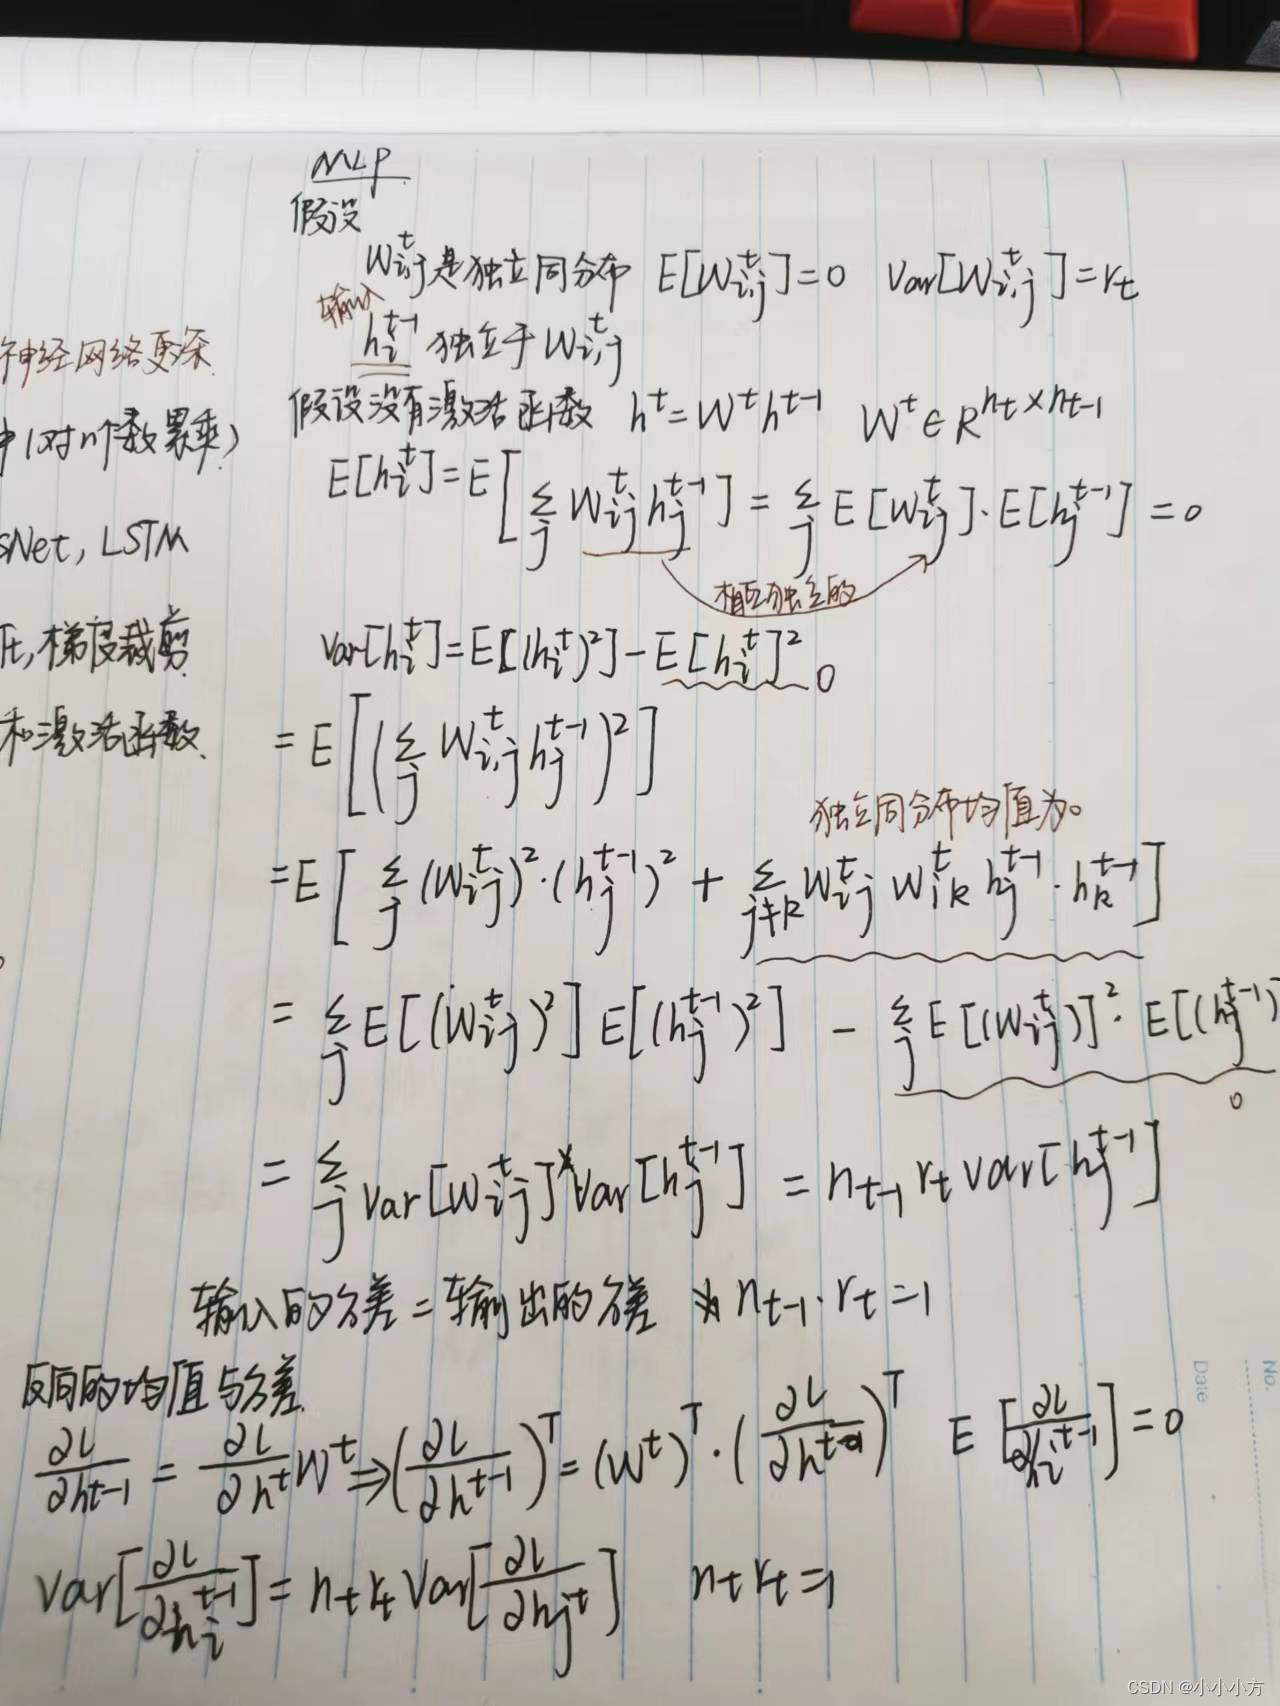 MLP
假设
W_{i,j}^t是独立同分布 E[W_{i,j}^t]=0 Var[W_{i,j}^t]=r_t
输入
h_i^{t-1} 独立于 W_{i,j}^t
假设没有激活函数 h^t=W^t h^{t-1} W^t∈R^{n_t×n_{t-1}}
E[h_i^t]=E[∑_j W_{ij}^t h_j^{t-1}]=∑_j E[W_{ij}^t]·E[h_j^{t-1}]=0
相互独立的
Var[h_i^t]=E[(h_i^t)^2]-E[h_i^t]^2 0
=E[(∑_j W_{i,j}^t h_j^{t-1})^2]
独立同分布均值为0
=E[∑_j (W_{ij}^t)^2·(h_j^{t-1})^2+∑_{j≠k} W_{ij}^t W_{ik}^t h_j^{t-1}·h_k^{t-1}]
=∑_j E[(W_{ij}^t)^2]E[(h_j^{t-1})^2]-∑_j E[(W_{ij}^t)]^2·E[(h_j^{t-1})
0
=∑_j Var[W_{ij}^t]×Var[h_j^{t-1}]=n_{t-1}r_t Var[h_j^{t-1}]
输入的方差=输出的方差 n_{t-1}·r_t=1
反向的均值与方差
∂L/∂h^{t-1}=∂L/∂h^t W^t⇒(∂L/∂h^{t-1})^T=(W^t)^T·(∂L/∂h^t)^T E[∂L/∂h_i^{t-1}]=0
Var[∂L/∂h_i^{t-1}]=n_t r_t Var[∂L/∂h_j^t] n_t r_t=1
神经网络更深
(对n个数累乘)
sNet, LSTM
梯度裁剪
和激活函数
No.
Date
CSDN @小小小方